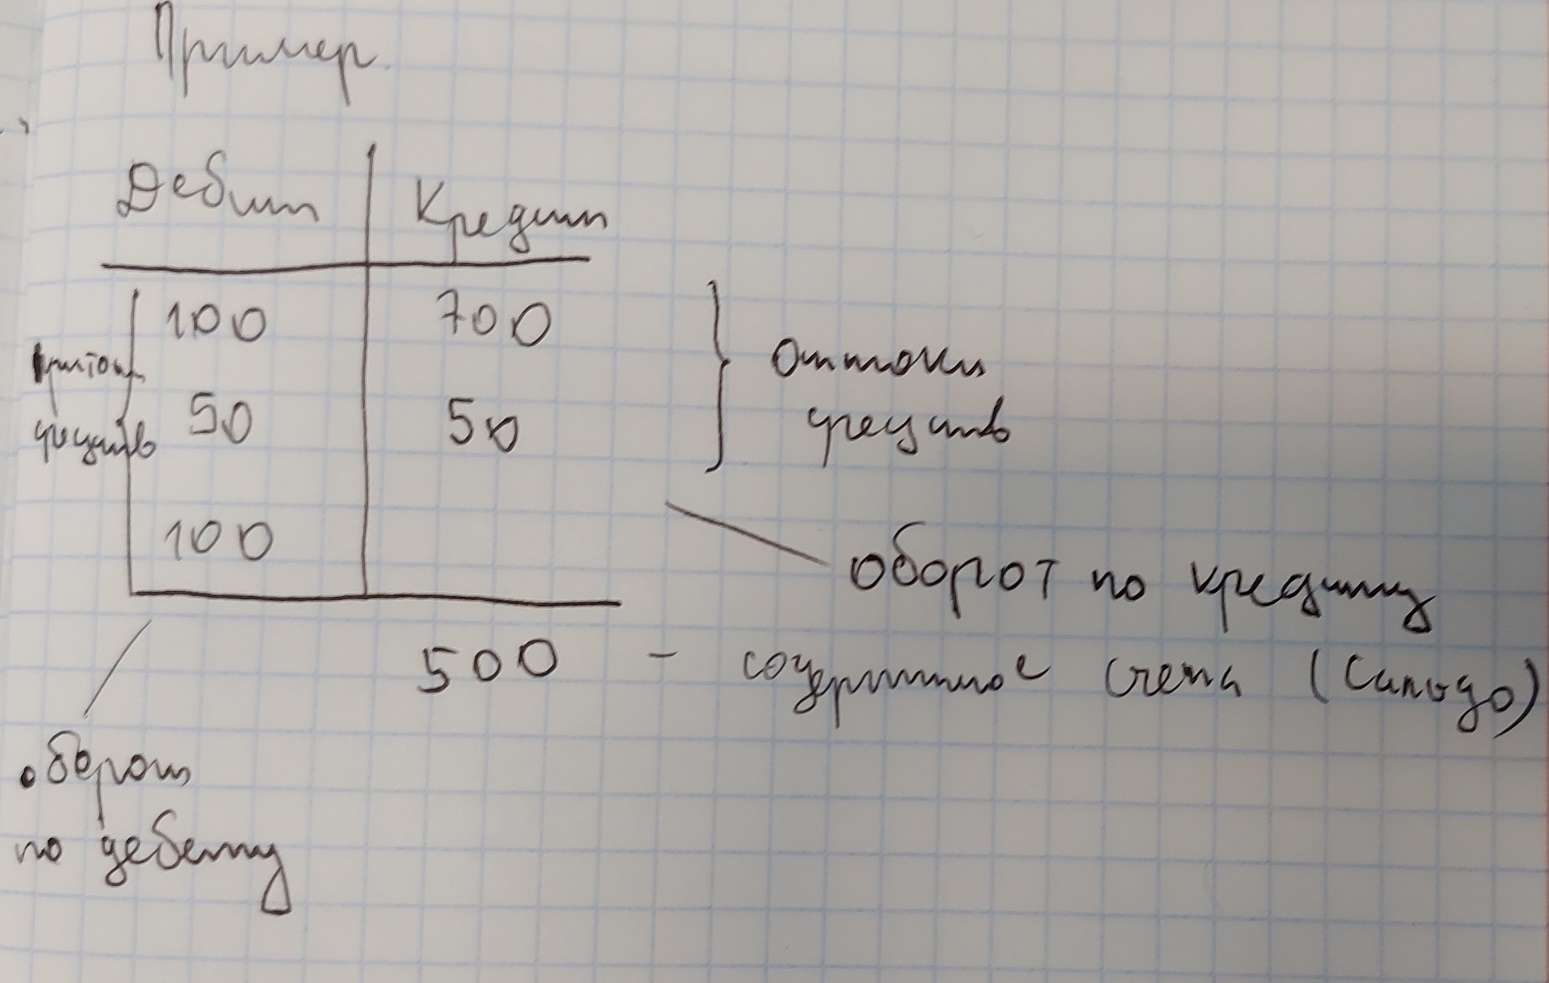 Пример.
Дебит Кредит
100 700
Притоки
средств
50 50
100
Оттоки
средств
оборот по кредиту
500 - содержимое счета (Сальдо)
оборот
по дебету